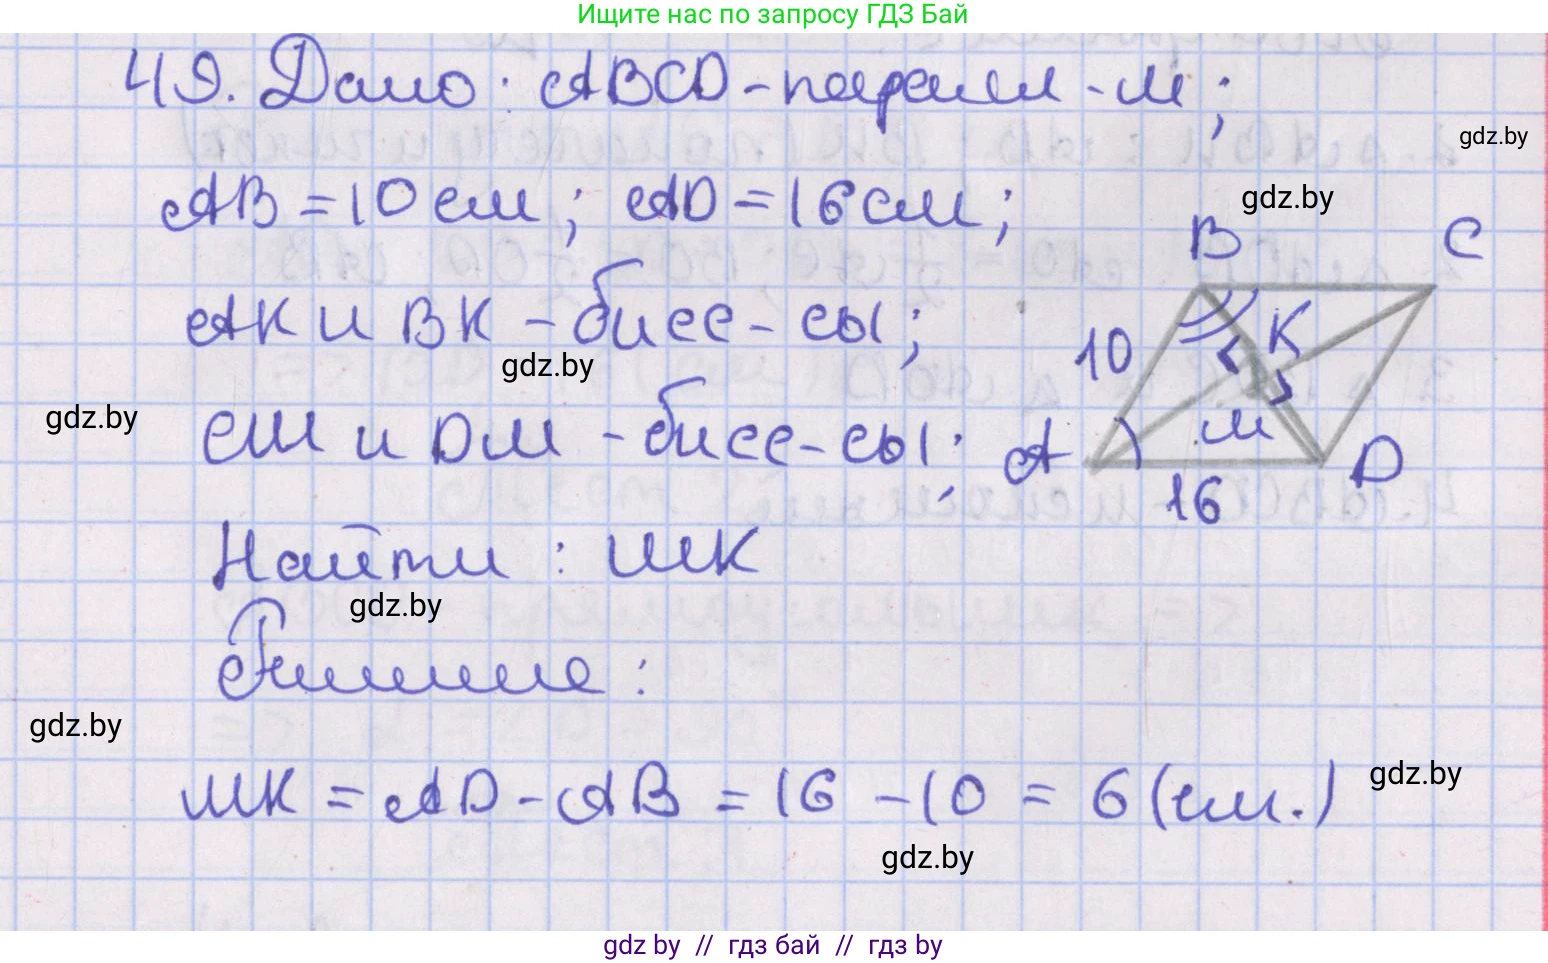 Ищите нас по запросу ГДЗ Бай
49. Дано: ABCD-паралл-м;
gdz.by
AB=10см; AD=16см;
gdz.by
B C
AK и BK - бисс-сы;
10 K
gdz.by
gdz.by
CM и DM - бисс-сы;
A M D
16
Найти: MK
gdz.by
Решение:
gdz.by
MK = AD-AB = 16-10 = 6(см.)
gdz.by
gdz.by
gdz by // гдз бай // гдз by